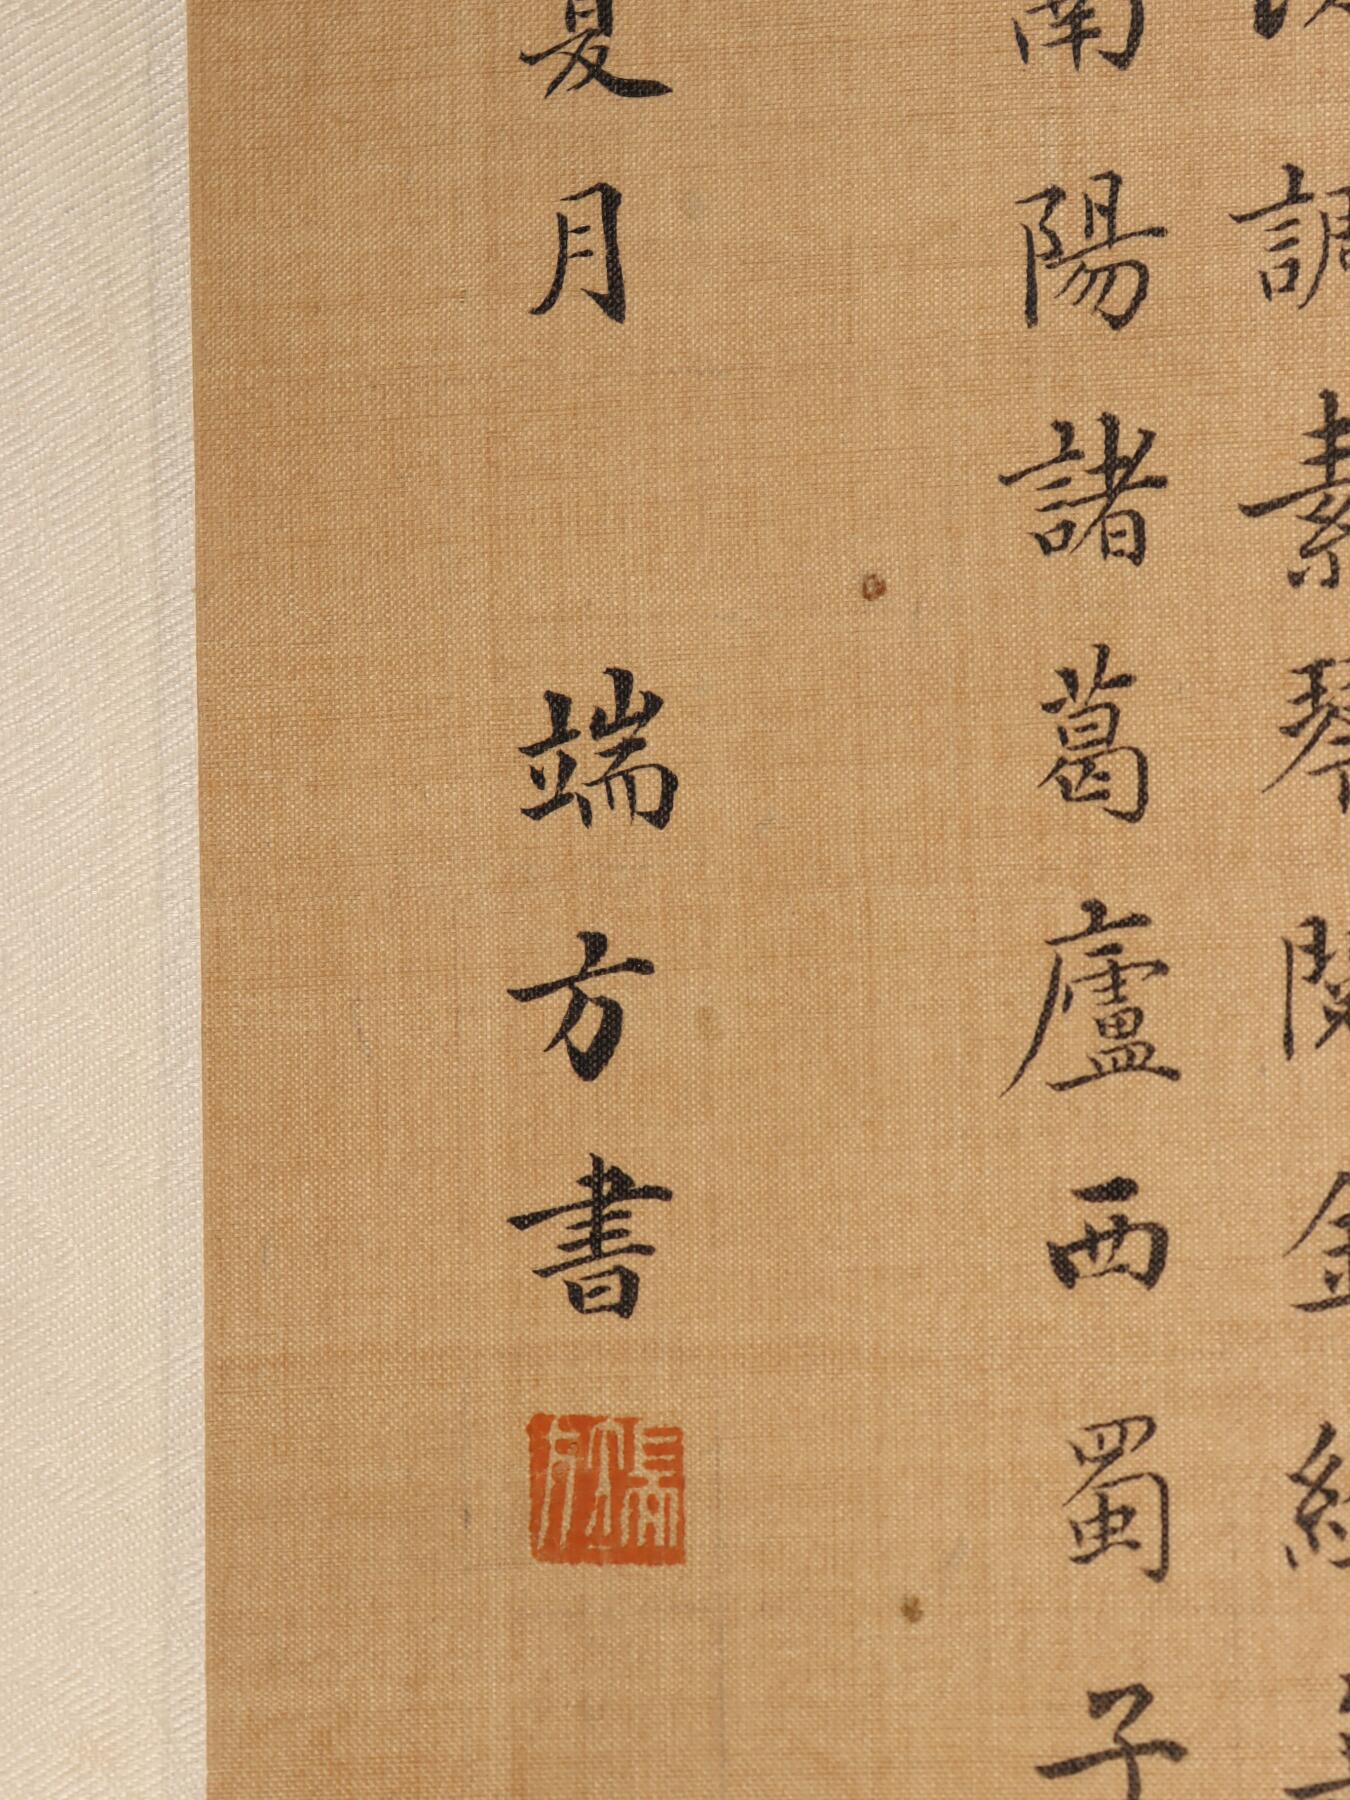 調素琴閱金經
南陽諸葛廬西蜀子
夏月 端方書